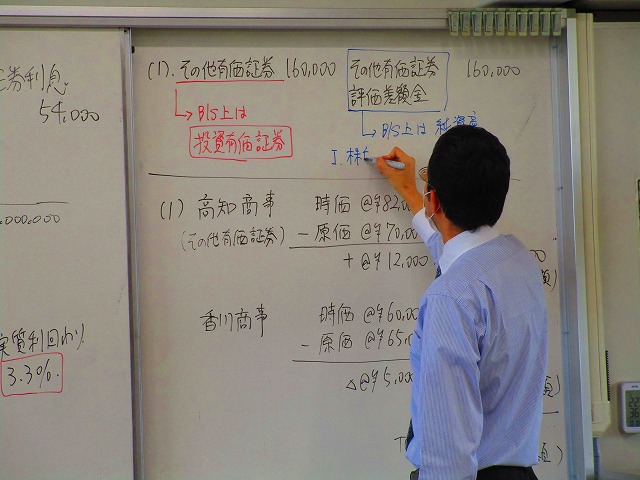 券利息
54,000
000,000
実質利回り
3.3%.
(1). その他有価証券 160,000 その他有価証券 160,000
評価差額金
→B/S上は
投資有価証券
→B/S上は 純資産
I. 株
(1) 高知商事 時価 @¥82,0
(その他有価証券) - 原価 @¥70,00
+ @¥12,000
香川商事 時価 @¥60,00
- 原価 @¥65,0
△@¥5,000